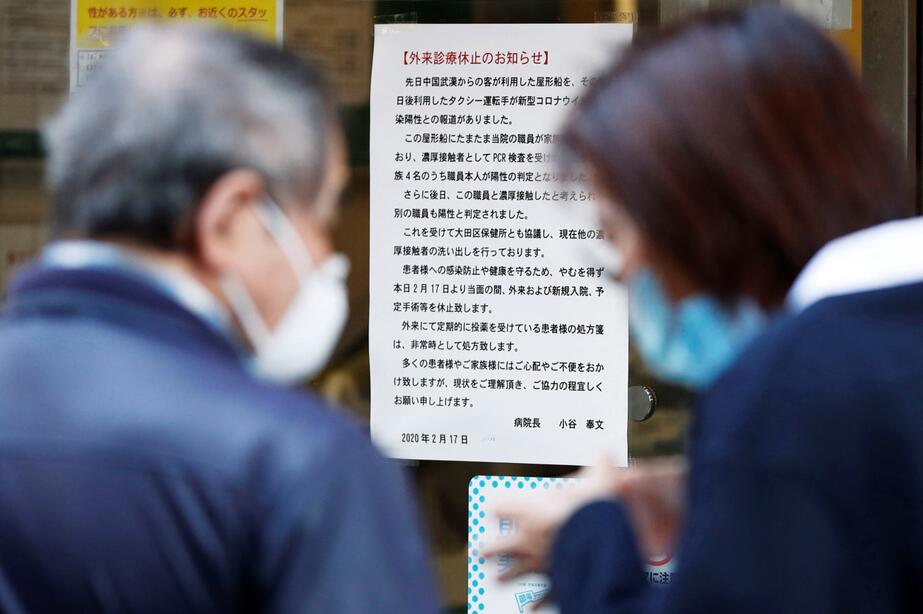 性がある方は、必ず、お近くのスタッ
【外来診療休止のお知らせ】
先日中国武漢からの客が利用した屋形船を、その
日後利用したタクシー運転手が新型コロナウイ
染陽性との報道がありました。
この屋形船にたまたま当院の職員が家族
おり、濃厚接触者として PCR 検査を受け
族4名のうち職員本人が陽性の判定となりました
さらに後日、この職員と濃厚接触したと考えられ
別の職員も陽性と判定されました。
これを受けて大田区保健所とも協議し、現在他の濃
厚接触者の洗い出しを行っております。
患者様への感染防止や健康を守るため、やむを得ず
本日2月17日より当面の間、外来および新規入院、予
定手術等を休止致します。
外来にて定期的に投薬を受けている患者様の処方箋
は、非常時として処方致します。
多くの患者様やご家族様にはご心配やご不便をおか
け致しますが、現状をご理解頂き、ご協力の程宜しく
お願い申し上げます。
病院長 小谷 奉文
2020年2月17日